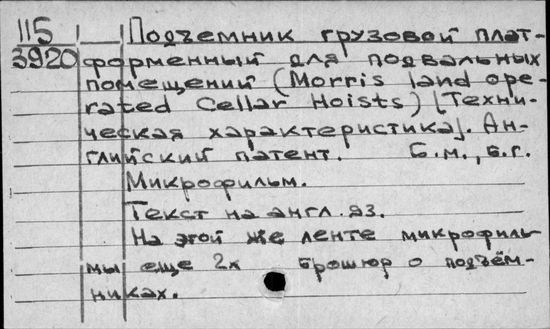 115 Подъемник грузовой плат-
3920 форменный для подвальных
помещений (Morris land ope-
rated Cellar Hoists) [Техни-
ческая характеристика]. Ан-
глийский патент. Б.м., б.г.
Микрофильм.
Текст на англ. яз.
На этой же ленте микрофиль
мы еще 2х брошюр о подъём-
никах.